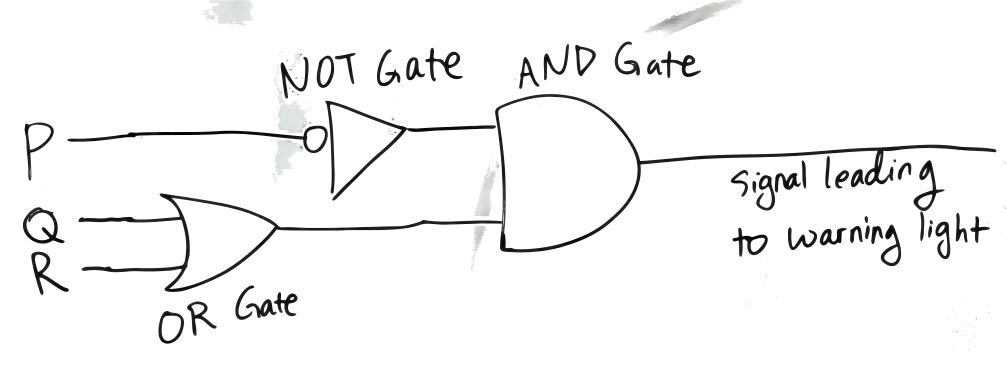 NOT Gate
AND Gate
P
Q
R
OR Gate
signal leading
to warning light